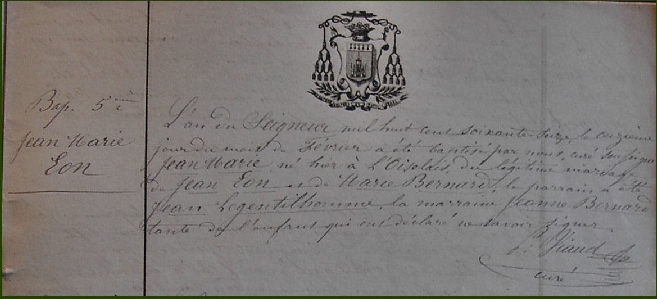 Bap. 5ème
Jean Marie
Eon
L'an du Seigneur mil huit cent soixante treize, le onzième
jour du mois de Février a été baptisé par nous, curé soussigné
Jean Marie né hier à du légitime mariage
de Jean Eon et de Marie Bernard, le parrain a été
Jean Legentilhomme, la marraine Jeanne Bernard
tante de l'enfant qui ont déclaré ne savoir signer
curé